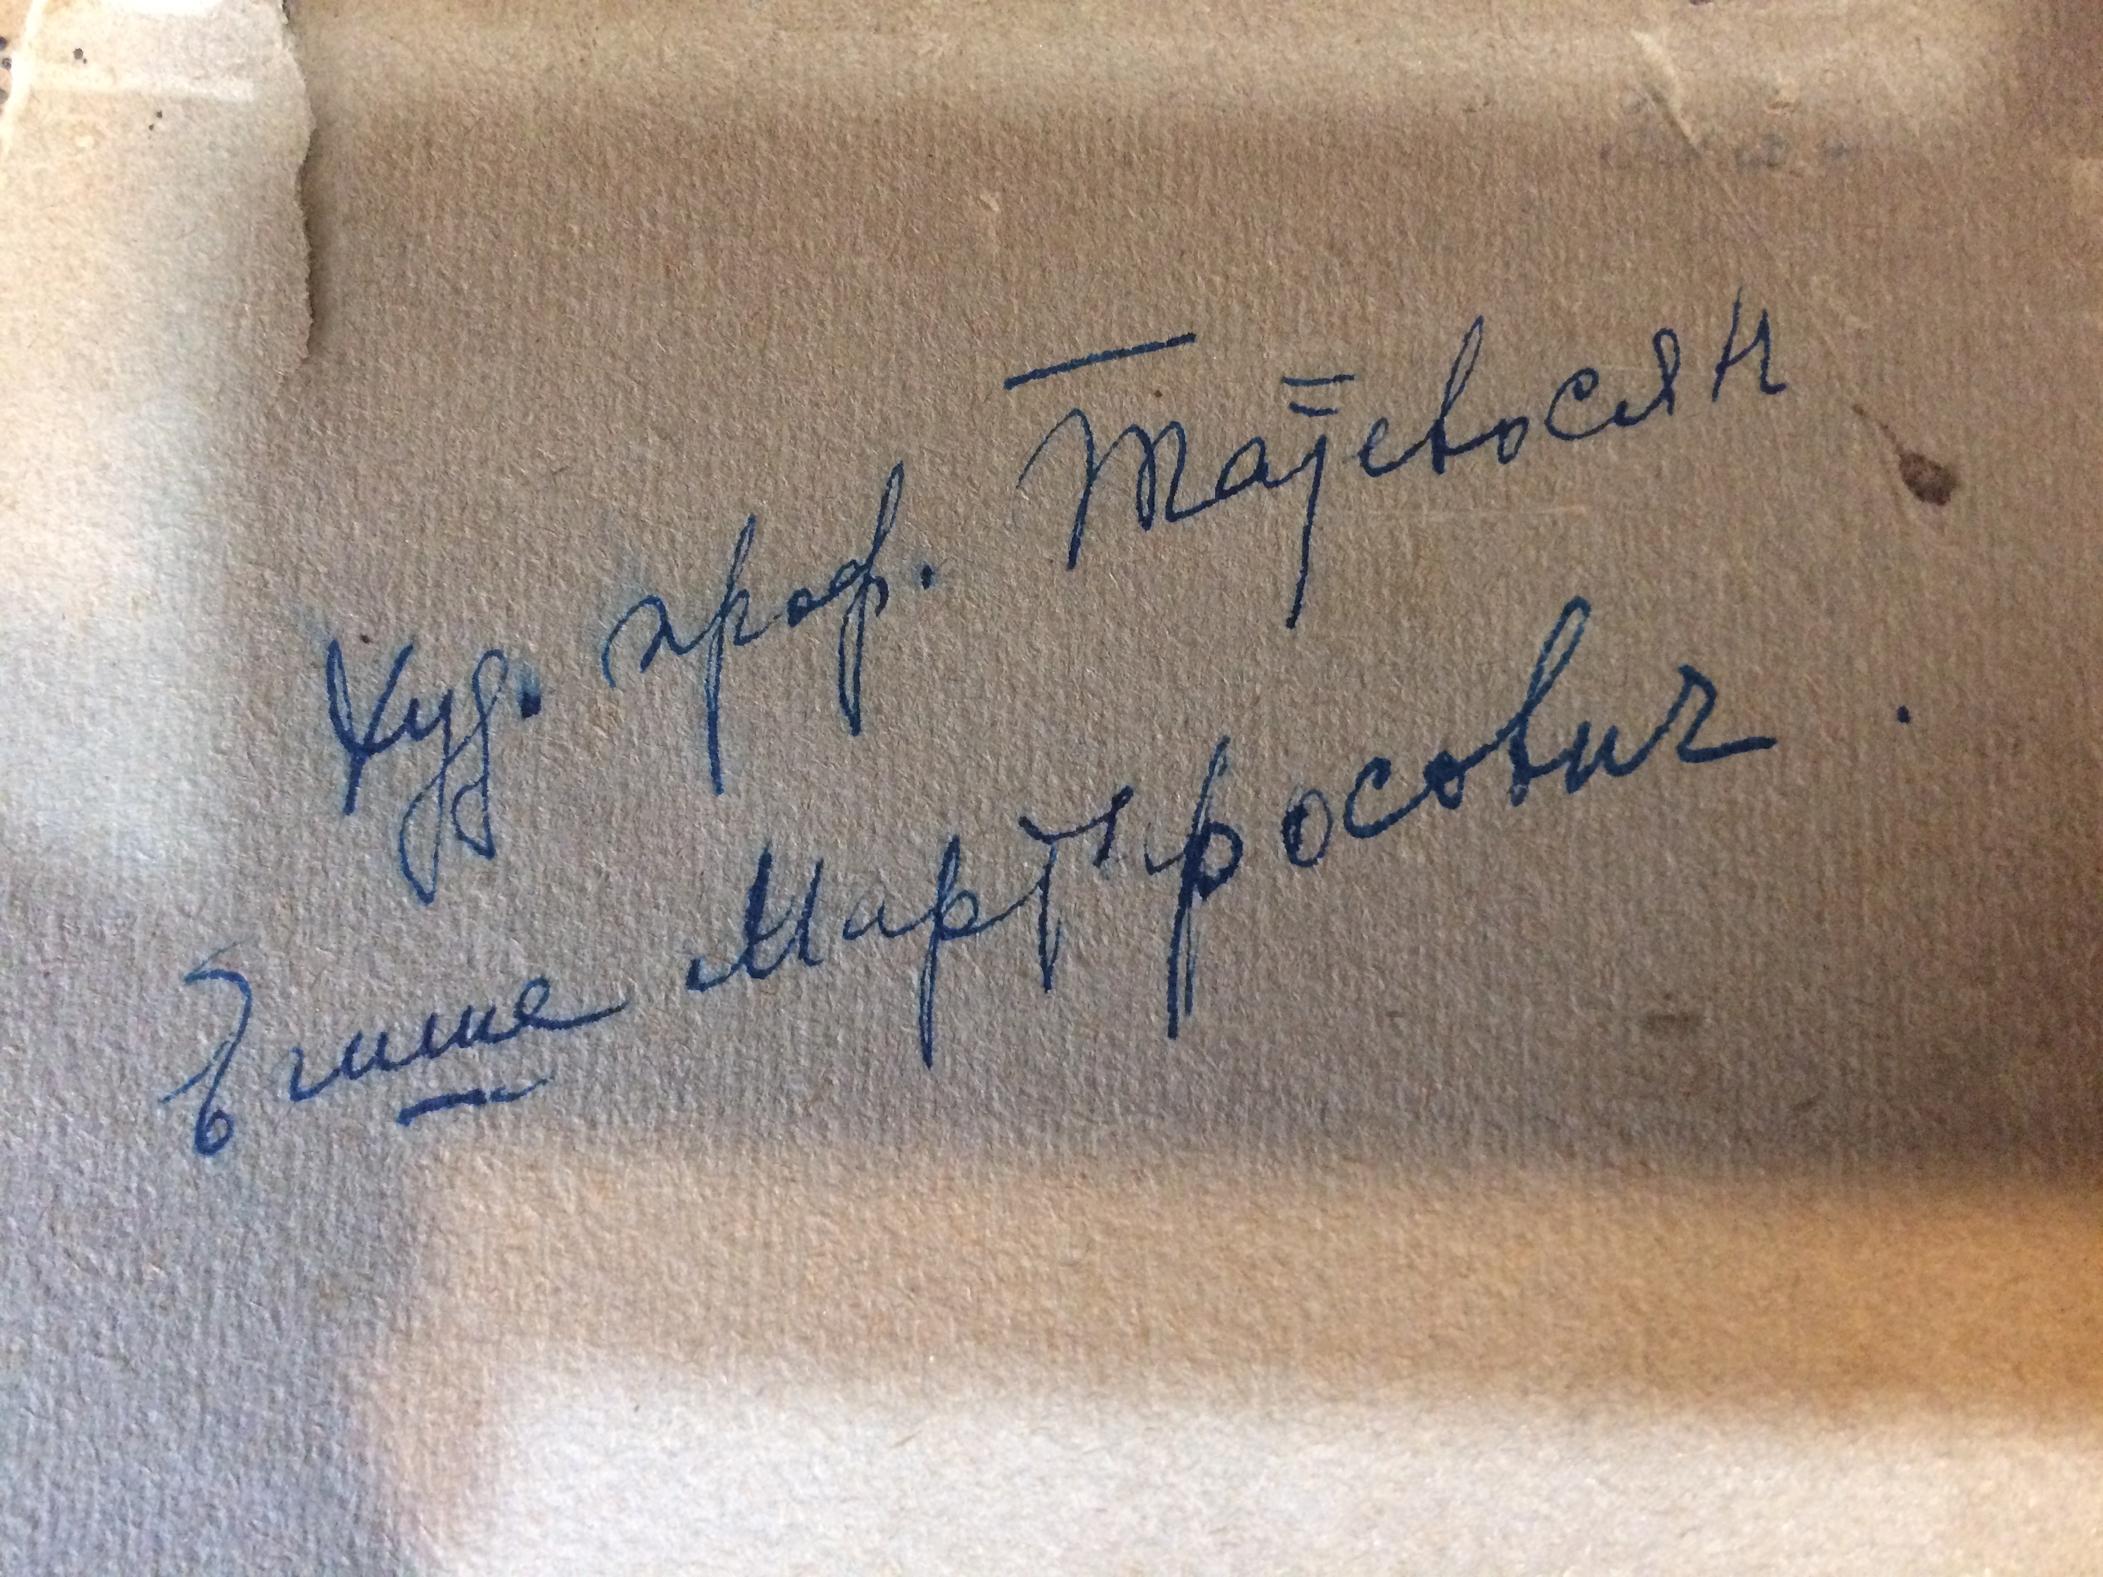 Худ. проф. Татевосян
Егише Мартиросович.